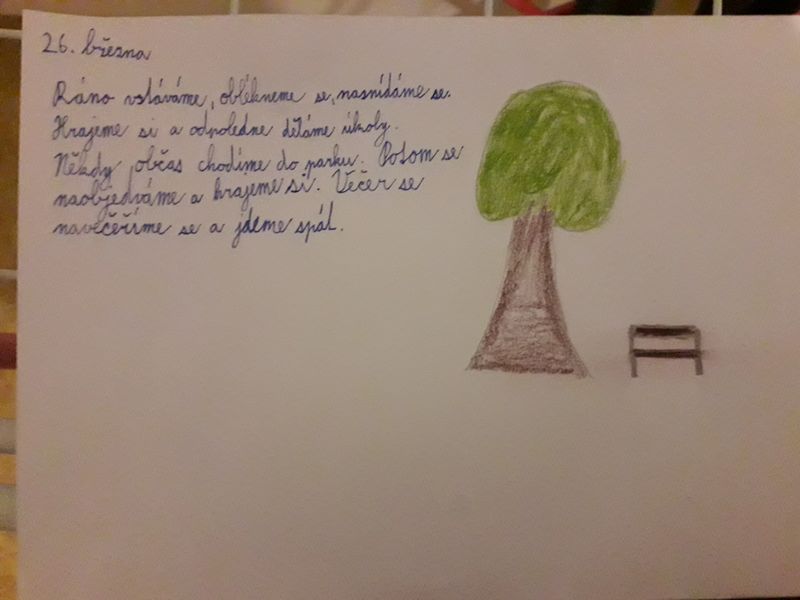 26. března
Ráno vstáváme, oblékneme se, nasnídáme se.
Hrajeme si a odpoledne děláme úkoly.
Někdy občas chodíme do parku. Potom se
naobjedváme a hrajeme si. Večer se
navěčeříme se a jdeme spát.